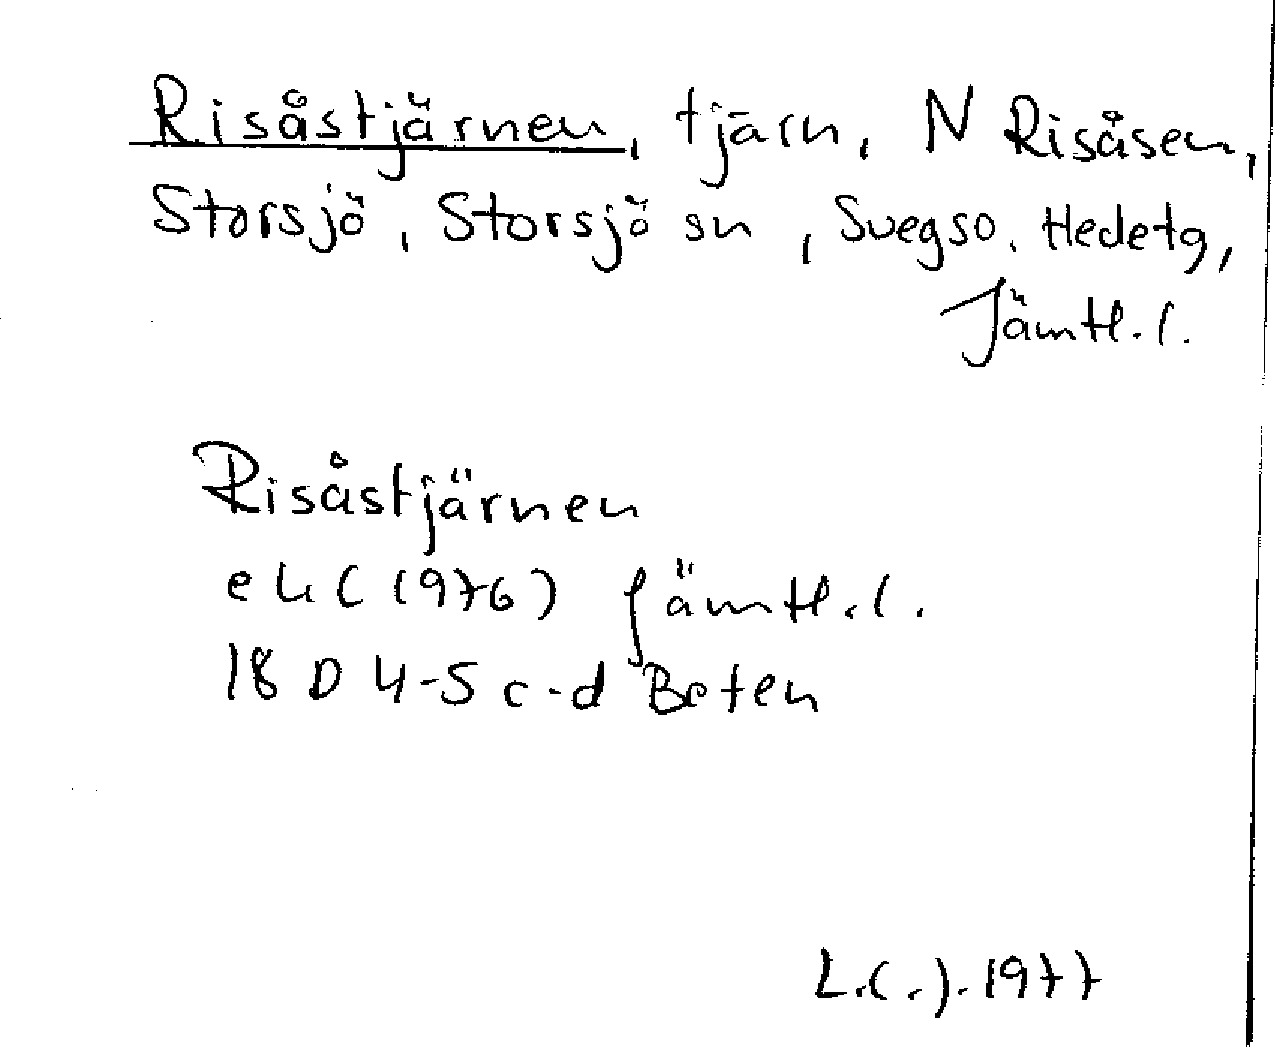 Risåstjärnen, tjärn, N Risåsen,
Storsjö, Storsjö sn, Svegso. Hedetg,
Jämtl. l.
Risåstjärnen
(1976) Jämtl. l.
18 D 4-5 c-d Boten
1977